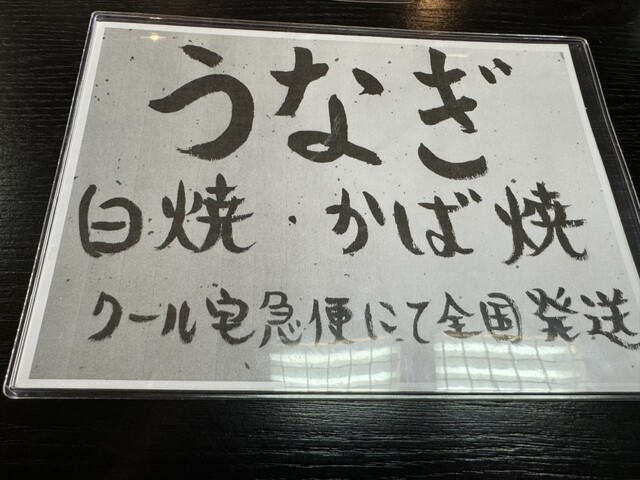 うなぎ
白焼・かば焼
クール宅急便にて全国発送